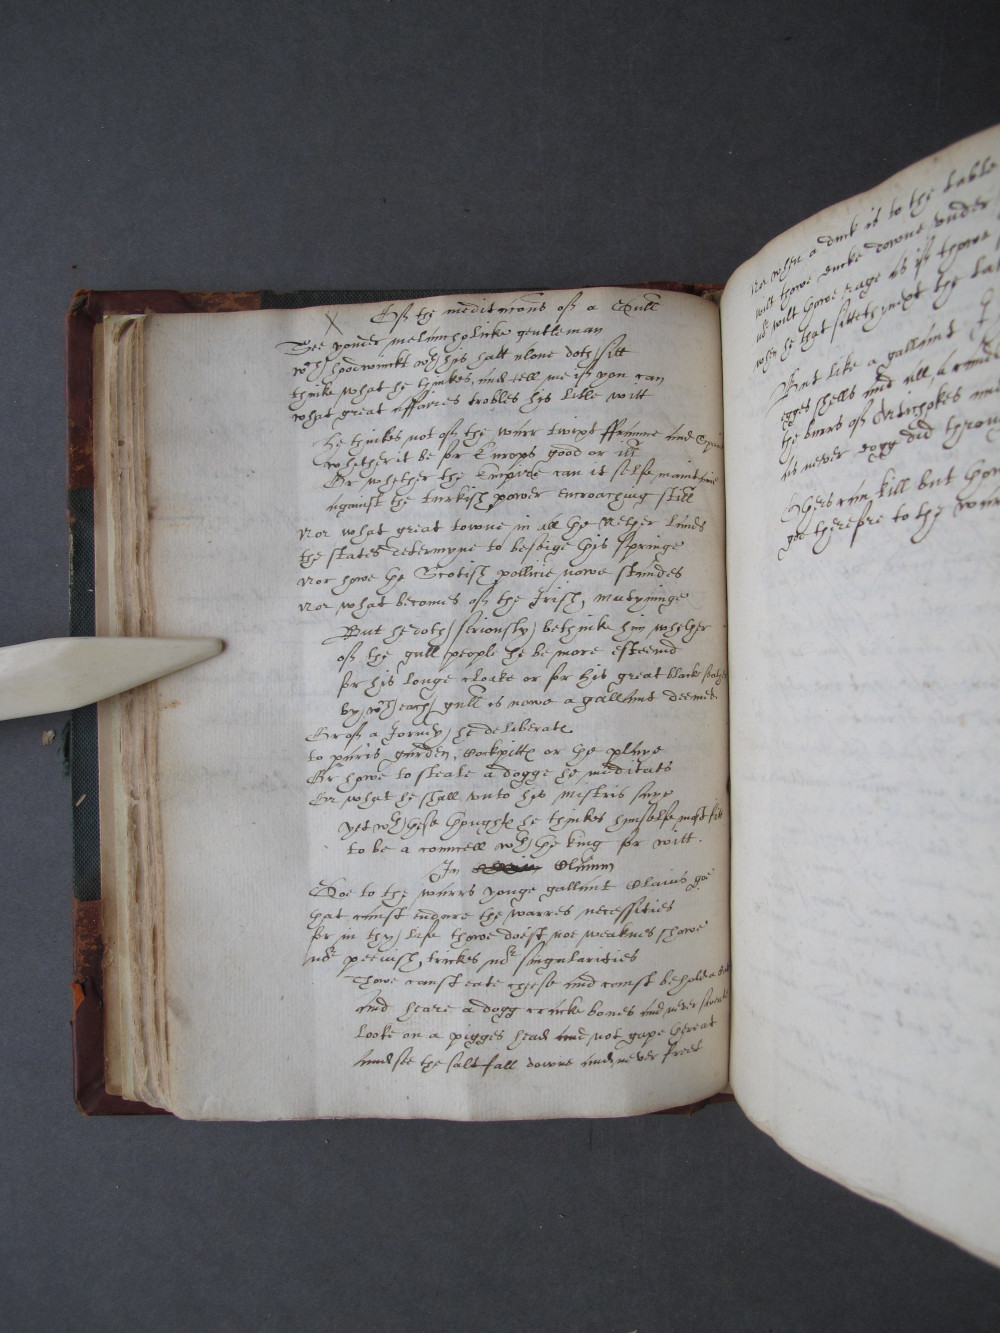 X Of the meditacons of a Gull
See yonder melancholicke gentleman
wch hoodwinckt wth his hatt alone doth sitt
thinke what he thinkes, and tell me if you can
what great affaires trobles his litle witt
He thinkes not of the warr twixt ffraunce and Spaine
whether it be for Europs good or ill
Or whether the Empire can it selfe maintaine
against the turkish power encroaching still
Nor what great towne in all the Nether lands
the states determyne to beseige this springe
Nor howe the Scotish pollicie nowe standes
Nor what becomes of the Irish mutyninge
But he doth seriously bethinke him whether
of the gull people he be more esteemd
for his longe cloake or for his great black feather
by wch each gull is nowe a gallant deemed
Or of a Jorney he deliberate
to paris garden, Cockpitt or the playe
Or howe to steale a dogge he meditats
Or what he shall vnto his mistris saye
yet wth these thoughts he thinkes himselfe most fitt
to be a councell wth the king for witt.
In Olaium
Goe to the warrs yonge gallant Olaius goe
that canst endure the warres necessities
for in thy life thowe doest not weaknes showe
nor peevish trickes nor singularities
Thow canst eate chese and canst behold a Catt
and heare a dogg cracke bones and never sweate
looke on a pigges head and not gape thereat
and see the salt fall downe and never frett
Nor when a is to the table
wilt thowe downe vnder
nor wilt thowe rage as if thowe
when he that sitteth next the
But like a gallant
egges shells and all, a
the burrs of Artichokes
as never dogg did
Thers can kill but
goe therefore to the warrs